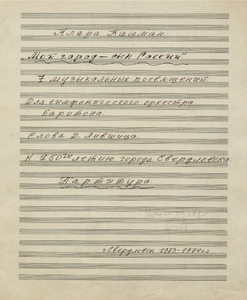 Клара Кацман
„Мой город — сын России"
7 музыкальных посвящений
Для симфонического оркестра
Баритона
Слова Д. Лившица
К 250ти летию города Свердловска
Партитура
г. Свердловск 1973-1974 г.